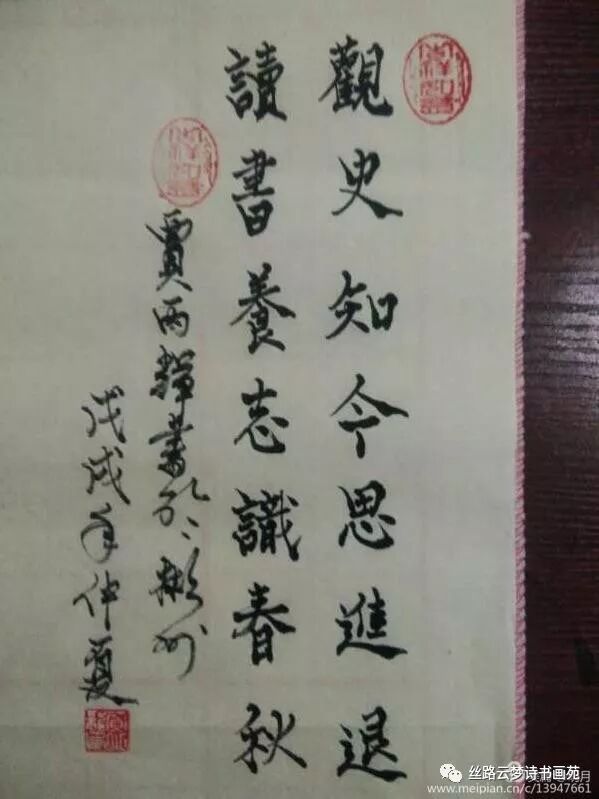 觀史知今思進退
讀書養志識春秋
賈丙輝書於彬州
戊戌年仲夏
丝路云梦诗书画苑
www.meipian.cn/c/13947661